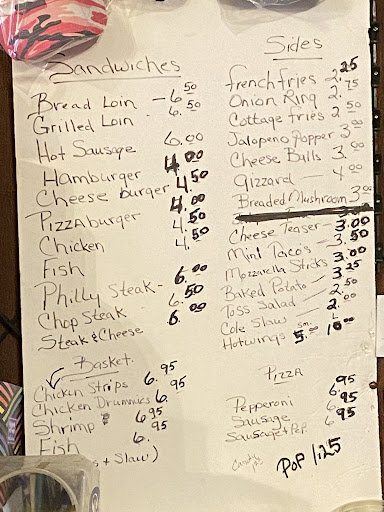 Sandwiches
Bread Loin — 6.50
Grilled Loin . 6.50
Hot Sausage 6.00
Hamburger 4.00
Cheese burger 4.50
Pizzaburger 4.00
Chicken 4.50
Fish 4.50
Philly Steak - 6.00
Chop Steak 6.50
Steak & Cheese 6.00
Basket
Chicken Strips 6.95
Chicken Drummies 6.95
Shrimp 6.95
Fish 6.95
+ Slaw)
Sides
french fries 2.25
Onion Ring 2.75
Cottage fries 2.50
Jalapeno Popper 3.00
Cheese Balls 3.00
Gizzard — 4.00
Breaded Mushroom 3.00
Cheese Teaser — 3.00
Mini Tacos — 3.50
Mozzarella Sticks 3.00
Baked Potato — 3.25
Toss Salad — 2.50
Cole Slaw — 2.00
Hotwings sm. 5. - L 10.00
Pizza
Pepperoni 6.95
Sausage 6.95
Sausage + Pep 6.95
Pop 1.25